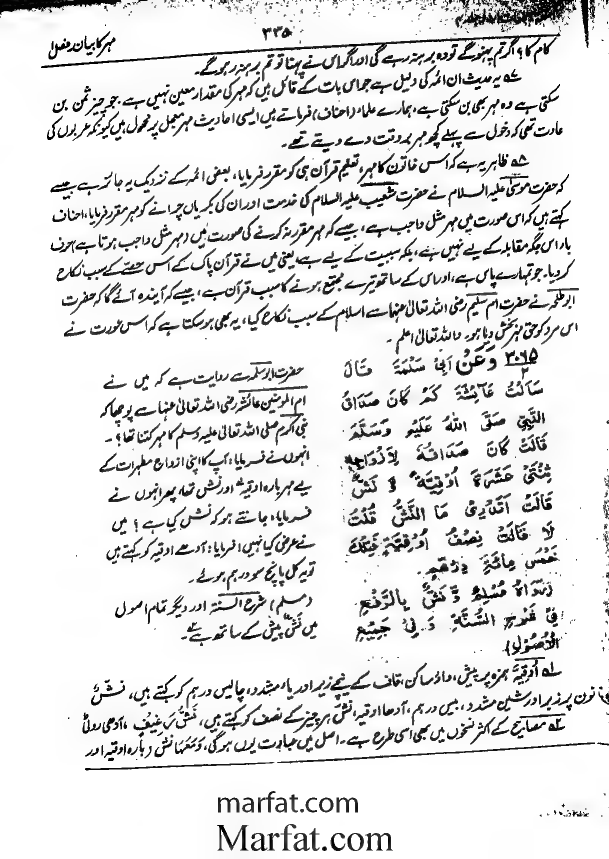 مہر کا بیان، فصل ۱
۳۳۵
کام کا؟ اگر تم پہنو گے تو وہ برہنہ رہے گی اور اگر اس نے پہنا تو تم برہنہ رہو گے۔
ے یہ حدیث ان ائمہ کی دلیل ہے جو اس بات کے قائل ہیں کہ مہر کی مقدار معین نہیں ہے۔ جو چیز ثمن بن
سکتی ہے وہ مہر بھی بن سکتی ہے، ہمارے علماء (احناف) فرماتے ہیں ایسی احادیث مہر معجل پر محمول ہیں کیونکہ عربوں کی
عادت تھی کہ دخول سے پہلے کچھ مہر بر وقت دے دیتے تھے۔
۵۸ ظاہر یہ ہے کہ اس خاتون کا مہر، تعلیم قرآن ہی کو مقرر فرمایا، بعض ائمہ کے نزدیک یہ جائز ہے جیسے
کہ حضرت موسیٰ علیہ السلام نے حضرت شعیب علیہ السلام کی خدمت اور ان کی بکریاں چرانے کو مہر مقرر فرمایا، احناف
کہتے ہیں کہ اس صورت میں مہر مثل واجب ہے، جیسے کہ مہر مقرر نہ کرنے کی صورت میں (مہر مثل واجب ہوتا ہے) حرف
با اس جگہ مقابلہ کے لیے نہیں ہے، بلکہ سببیت کے لیے ہے یعنی میں نے قرآن پاک کے اس حصے کے سبب نکاح
کر دیا۔ جو تمہارے پاس ہے، اور اس کے ساتھ تیرے مجتمع ہونے کا سبب قرآن ہے، جیسے کہ آیندہ آئے گا کہ حضرت
ابو طلحہ نے حضرت ام سلیم رضی اللہ تعالیٰ عنہما سے اسلام کے سبب نکاح کیا، یہ بھی ہو سکتا ہے کہ اس عورت نے
اس مرد کو حق مہر بخش دیا ہو۔ واللہ تعالیٰ اعلم۔
۳۰۶۵ وَعَنْ اَبِیْ سَلْمَةَ قَالَ
۲
سَاَلْتُ عَائِشَةَ كَمْ كَانَ صَدَاقُ
النَّبِيِّ صَلَّى اللهُ عَلَيْهِ وَسَلَّمَ
قَالَتْ كَانَ صَدَاقُهُ لِاَزْوَاجِهٖ
ثِنْتَیْ عَشَرَةَ اُوْقِيَّةً وَّ نَشٌّ
قَالَتْ اَتَدْرِیْ مَا النَّشُّ قُلْتُ
لَا قَالَتْ نِصْفُ اُوْقِيَّةٍ فَتِلْكَ
خَمْسُ مِائَةِ دِرْهَمٍ۔
(رَوَاهُ مُسْلِمٌ وَ نَشٌّ بِالرَّفْعِ
فِیْ شَرْحِ السُّنَّةِ وَ فِیْ جَمِيْعِ
الْاُصُوْلِ)
حضرت ابو سلمہ سے روایت ہے کہ میں نے
ام المومنین عائشہ رضی اللہ تعالیٰ عنہا سے پوچھا کہ
نبی اکرم صلی اللہ تعالیٰ علیہ وسلم کا مہر کتنا تھا؟۔
انہوں نے فرمایا، آپ کا اپنی ازواج مطہرات کے
لیے مہر بارہ اوقیہ اور نش تھا، پھر انہوں نے
فرمایا، جانتے ہو کہ نش کیا ہے؟ میں
نے عرض کیا نہیں! فرمایا: آدھے اوقیہ کو کہتے ہیں
تو یہ کل پانچ سو درہم ہوئے۔
(مسلم) شرح السنۃ اور دیگر تمام اصول
میں نَشٌّ پیش کے ساتھ ہے۔
۵۱ اُوْقِیَّةٌ ہمزہ پر پیش، واؤ ساکن، قاف کے نیچے زیر اور یاء مشدد، چالیس درہم کو کہتے ہیں، نَشٌّ
نون پر زبر اور شین مشدد، بیس درہم، آدھا اوقیہ، نش ہر چیز کے نصف کو کہتے ہیں، نَشُّ رَغِیْفٍ، آدھی روٹی
۵۲ مصابیح کے اکثر نسخوں میں بھی اسی طرح ہے۔ اصل میں عبارت یوں ہو گی، وَمَعَهَا نَشٌّ (بارہ اوقیہ اور
marfat.com
Marfat.com